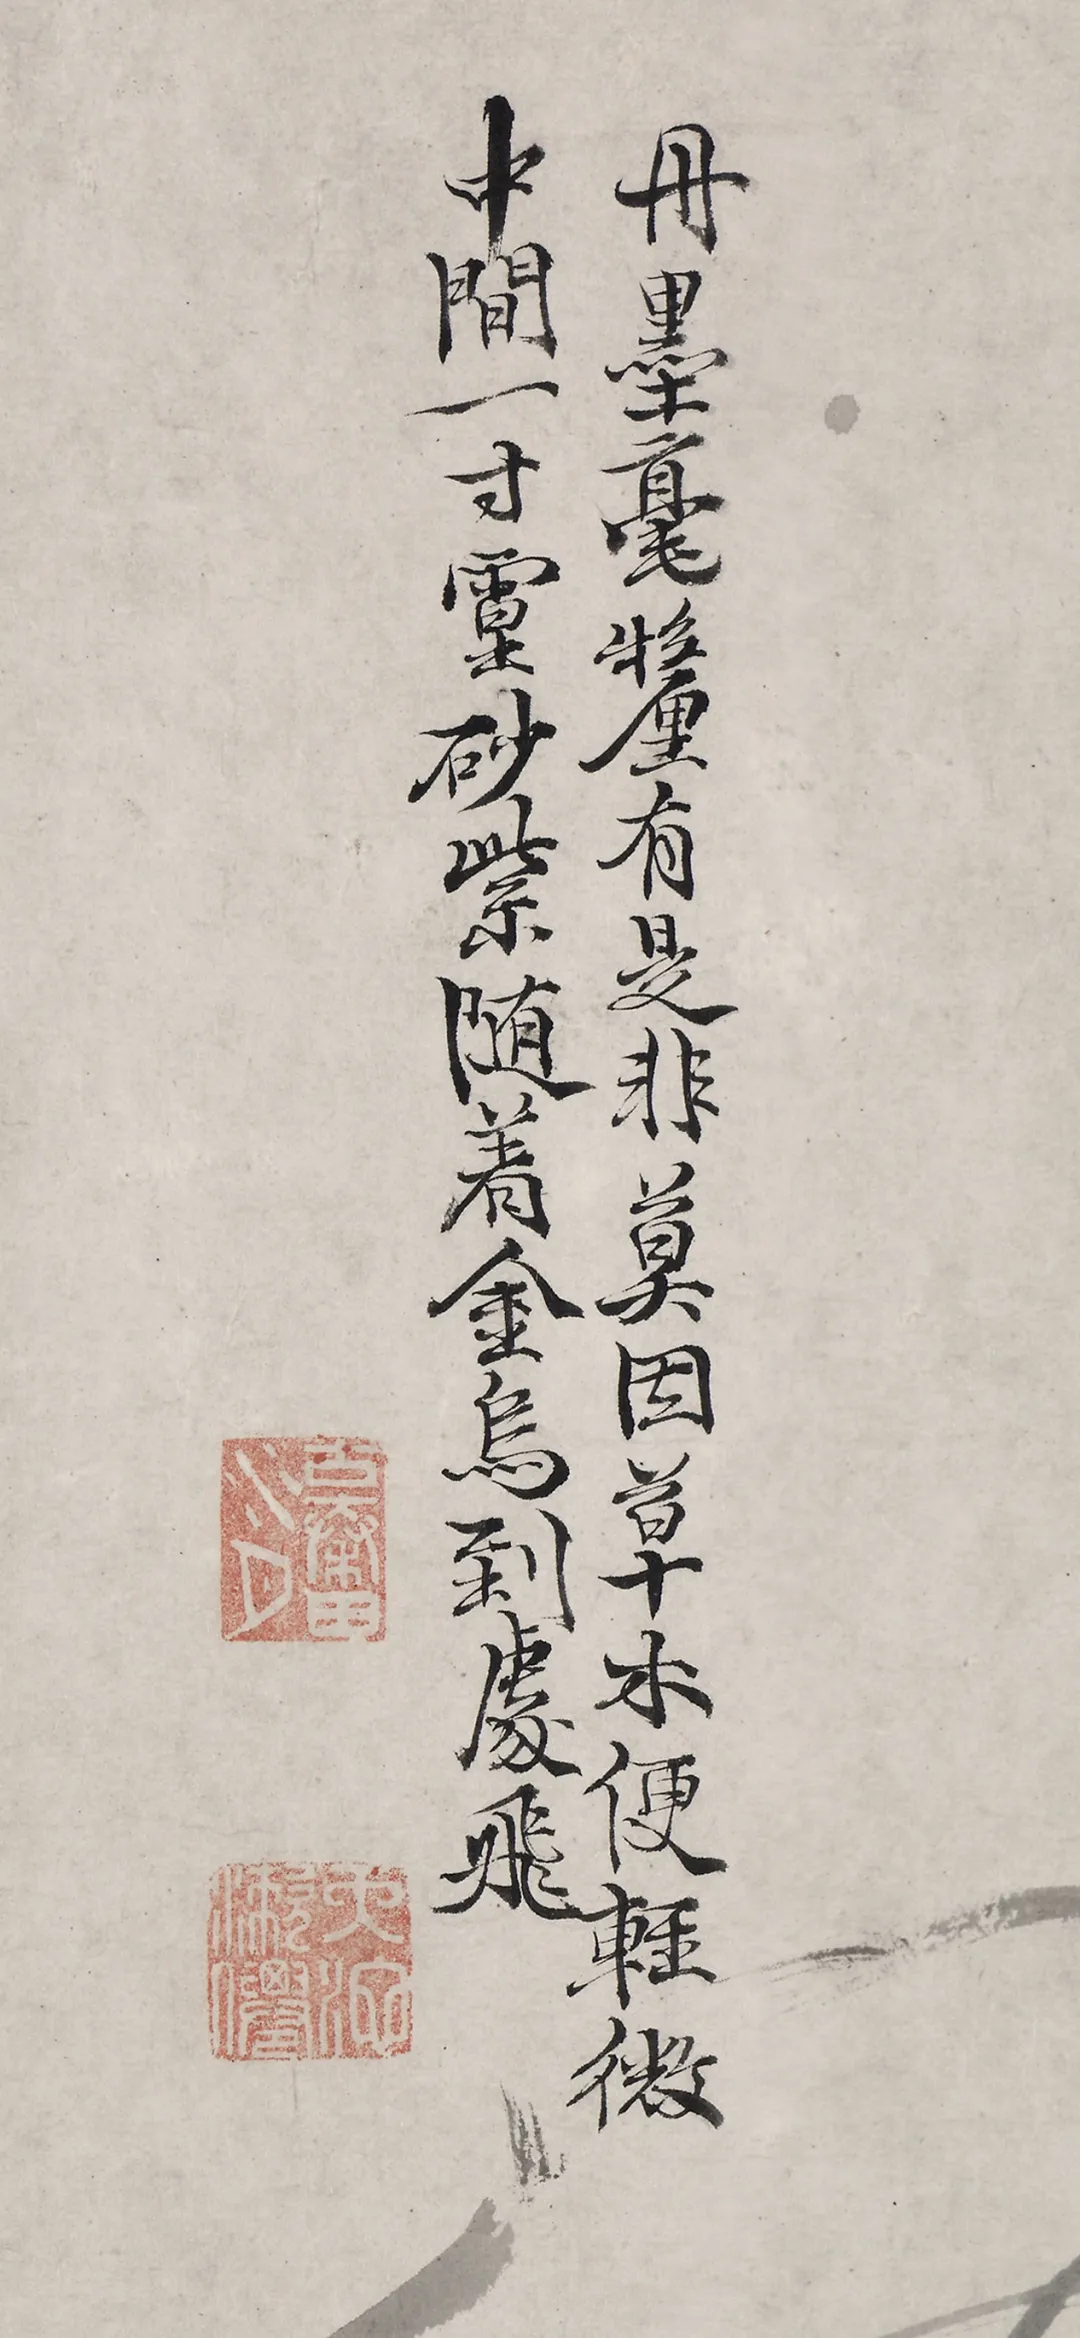 丹墨毫釐有是非莫因草木便輕微
中間一寸靈砂紫随着金烏到處飛
天池
漱僊